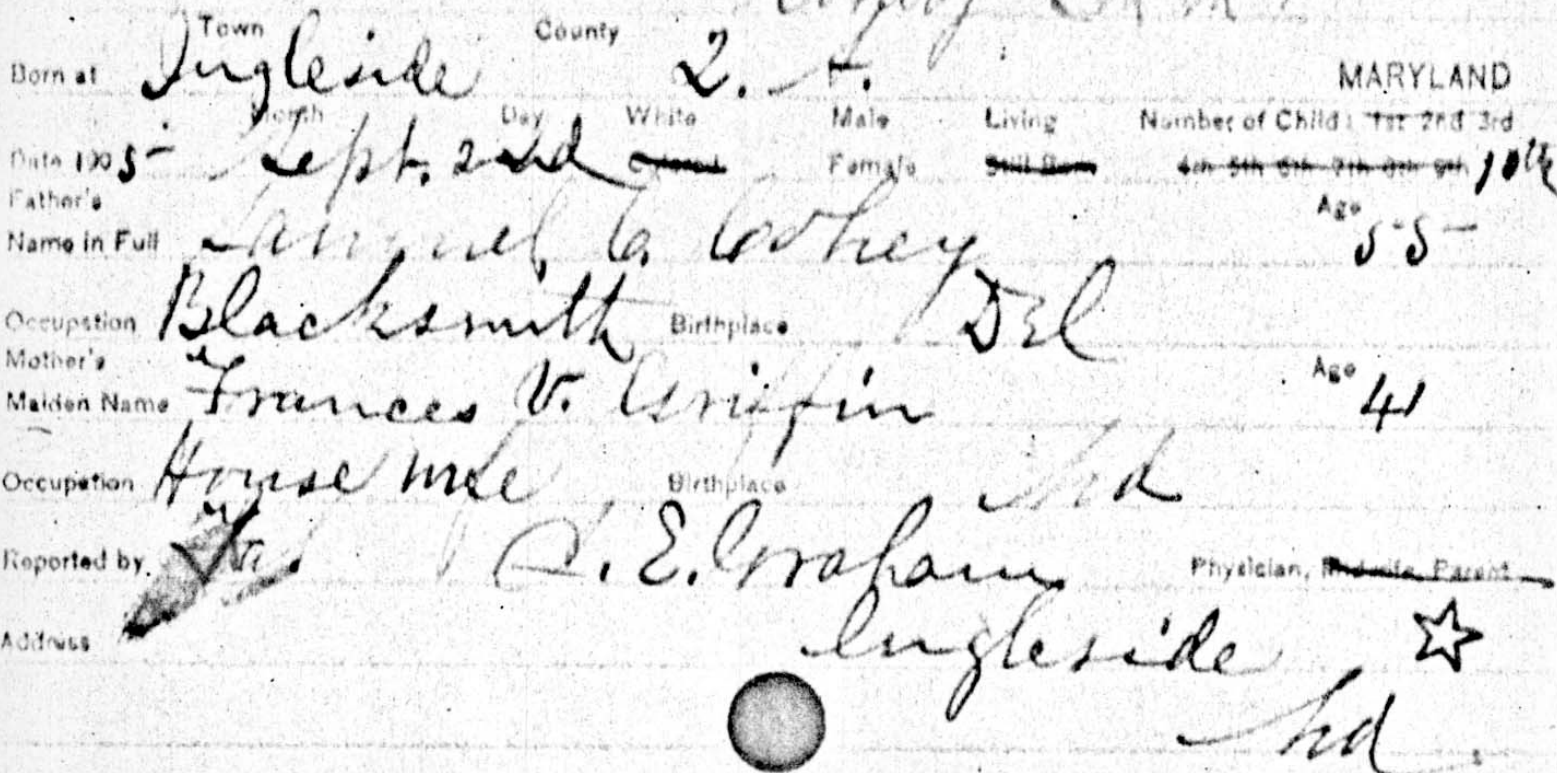 Town County
Born at Ingleside Q. A. MARYLAND
Month Day White Male Living Number of Child: 1st 2nd 3rd
Date 1905 Sept. 2nd Female Still Born 4th 5th 6th 7th 8th 9th 10th
Father's Age 55
Name in Full Samuel C. Cohey
Occupation Blacksmith Birthplace Del
Mother's Age 41
Maiden Name Frances V. Griffin
Occupation House wife Birthplace Md
Reported by S. E. Graham Physician, Midwife, Parent
Address Ingleside
Md